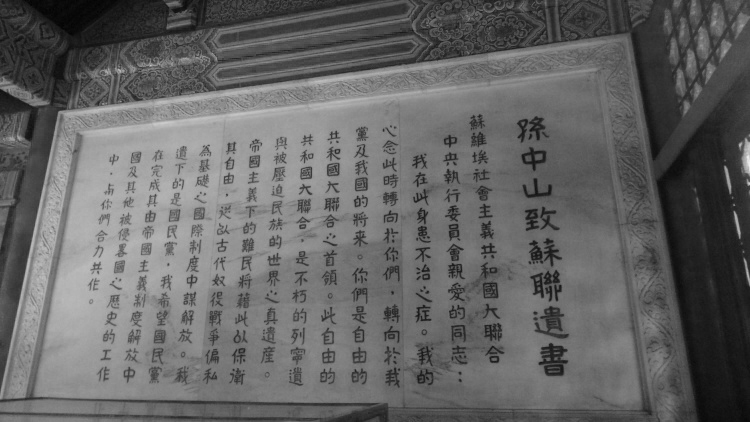 孫中山致蘇聯遺書
蘇維埃社會主義共和國大聯合
中央執行委員會親愛的同志：
我在此身患不治之症。我的
心念此時轉向於你們，轉向於我
黨及我國的將來。你們是自由的
共和國大聯合之首領。此自由的
共和國大聯合，是不朽的列寧遺
與被壓迫民族的世界之真遺產。
帝國主義下的難民將藉此以保衛
其自由，從以古代奴役戰爭偏私
為基礎之國際制度中謀解放。我
遺下的是國民黨，我希望國民黨
在完成其由帝國主義制度解放中
國及其他被侵畧國之歷史的工作
中，與你們合力共作。